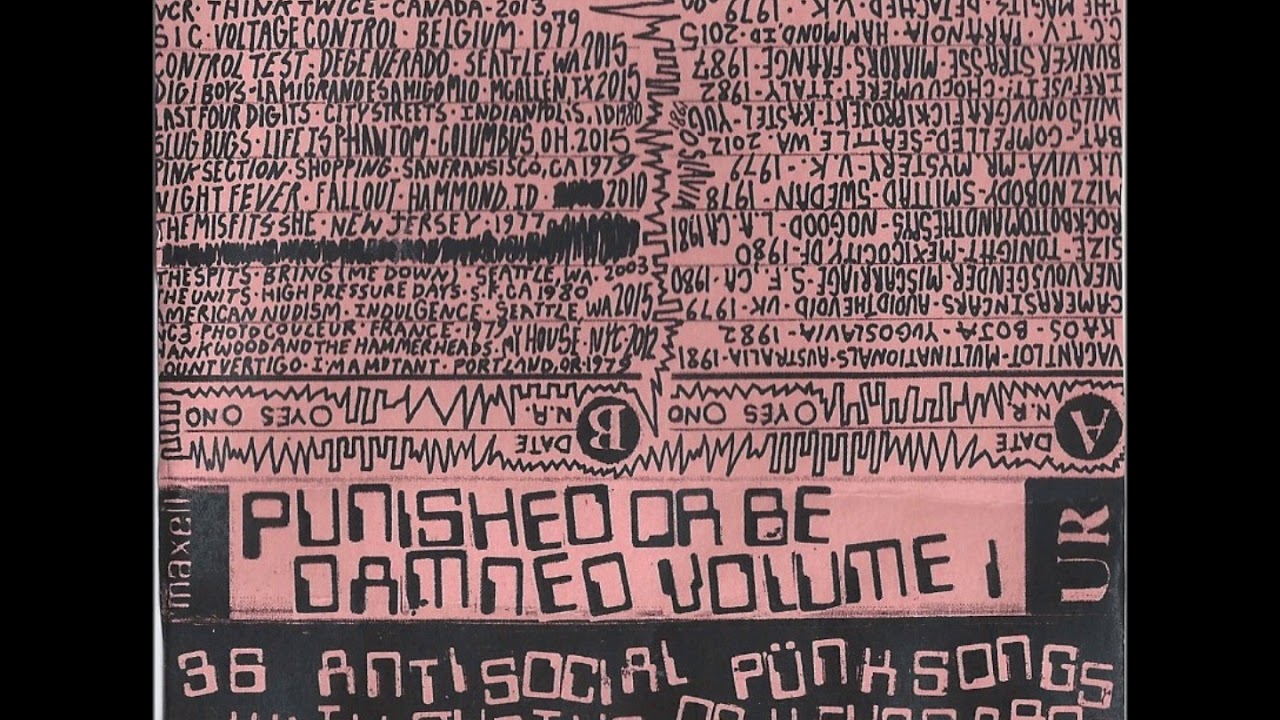 VCR·THINK TWICE-CANADA·2013
SIC·VOLTAGE CONTROL·BELGIUM·1979
CONTROL TEST·DEGENERADO·SEATTLE, WA 2015
DIGI BOYS·LA MIGRA NO ES AMIGO MIO·MCALLEN, TX 2015
LAST FOUR DIGITS·CITY STREETS·INDIANPOLIS, ID 1980
SLUG BUGS·LIFE IS PHANTOM·COLUMBUS, OH. 2015
PINK SECTION·SHOPPING·SAN FRANSISCO, CA 1979
NIGHT FEVER·FALLOUT·HAMMOND, ID· 2010
THE MISFITS SHE·NEW JERSEY·1977
THE SPITS·BRING (ME DOWN)·SEATTLE, WA 2003
THE UNITS·HIGH PRESSURE DAYS·S.F. CA 1980
AMERICAN NUDISM·INDULGENCE·SEATTLE, WA 2015
PHOTO COULEUR·FRANCE-1979
WOOD AND THE HAMMERHEADS·MY HOUSE·NYC·2012
COUNT VERTIGO·I'M A MUTANT·PORTLAND, OR·1979
VACANT LOT·MULTINATIONALS·AUSTRALIA·1981
KAOS - BOJA - YUGOSLAVIA - 1982
CAMERAS IN CARS·AVOID THE VOID·UK·1979
NERVOUS GENDER·MISCARRIAGE·S.F., CA·1980
SIZE·TONIGHT·MEXICO CITY, DF·1980
ROCK BOTTOM AND THE SPYS·NO GOOD·L.A. CA 1981
MIZZ NOBODY·SMITTAD·SWEDEN·1978
U.K. VIVA·MR MYSTERY·U.K.·1979
BAT·COMPELLED·SEATTLE, WA, 2012
GRAFICKI PROJEKT·KASTEL·YUGOSLAVIA 1980
I REFUSE IT·CHOCUMERET·ITALY·1982
BUNKER STRASSE·MIRRORS·FRANCE·1987
C.C.T.V.·PARANOIA·HAMMOND, ID·2015
THE MAGITS·DETACHED·U.K.·1979
A DATE
N.R. YES NO
B DATE
N.R. YES NO
maxell PUNISHED OR BE UR
DAMNED VOLUME 1
36 ANTISOCIAL PÜNK SONGS